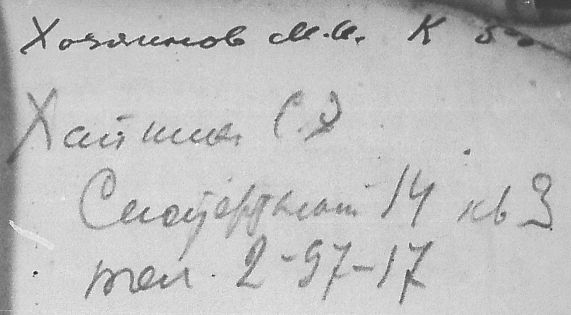 Хозяинов М.И. К 5
Хайкин С.Э
14 кв 3
тел. 2-97-17